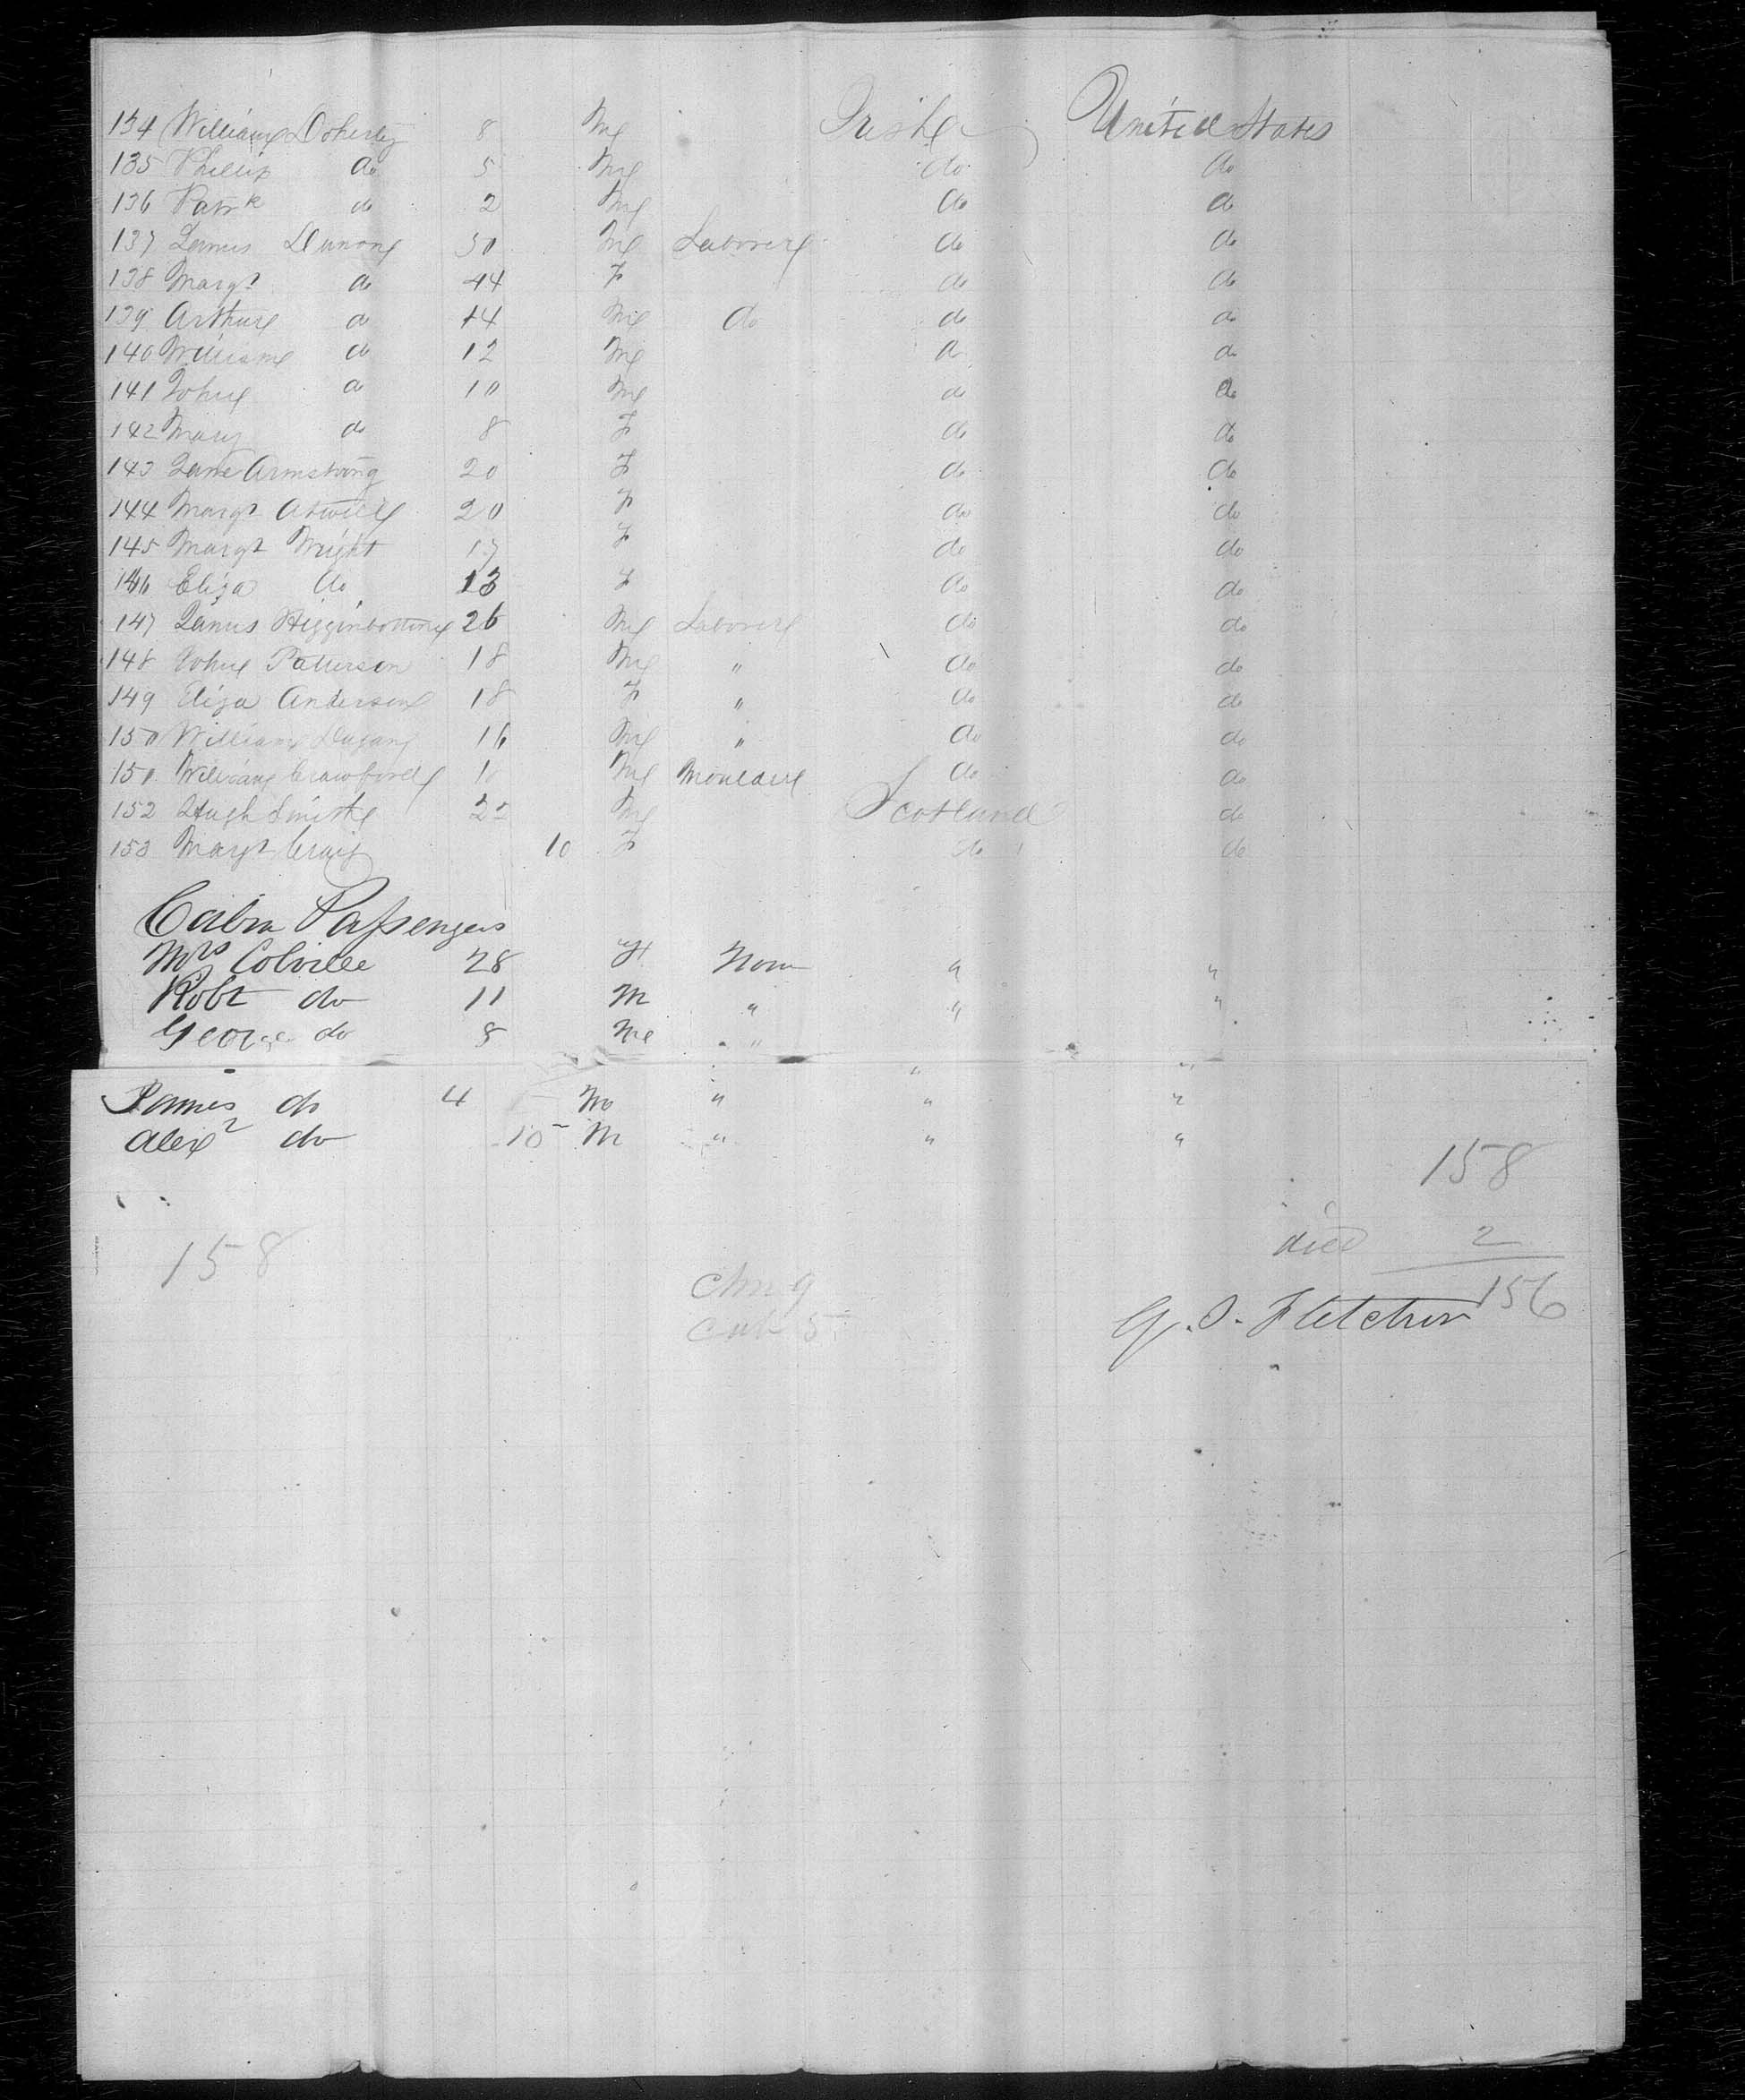 134 William Doherty 8 M Irish United States
135 Phillip do 5 M do do
136 Patrk do 2 M do do
137 James 50 M Laborer do do
138 Margt do 44 F do do
139 Arthur do 14 M do do do
140 William do 12 M do do
141 John do 10 M do do
142 Mary do 8 F do do
143 Jane Armstrong 20 F do do
144 Margt Atwill 20 F do do
145 Margt Wright 17 F do do
146 Eliza do 13 F do do
147 James Higginbottom 26 M Laborer do do
148 John Patterson 18 M " do do
149 Eliza Anderson 18 F " do do
150 William Dugan 16 M " do do
151 William Crawford M Moulder do do
152 Hugh Smith M Scotland do
153 Margt Craig 10 F do do
Cabin Passengers
Mrs Colville 28 F None " "
Robt do 11 M " " "
George do 8 M " " "
James do 4 M " " "
Alexr do 10 M " " "
158
died 2
158
156
G. S. Fletcher